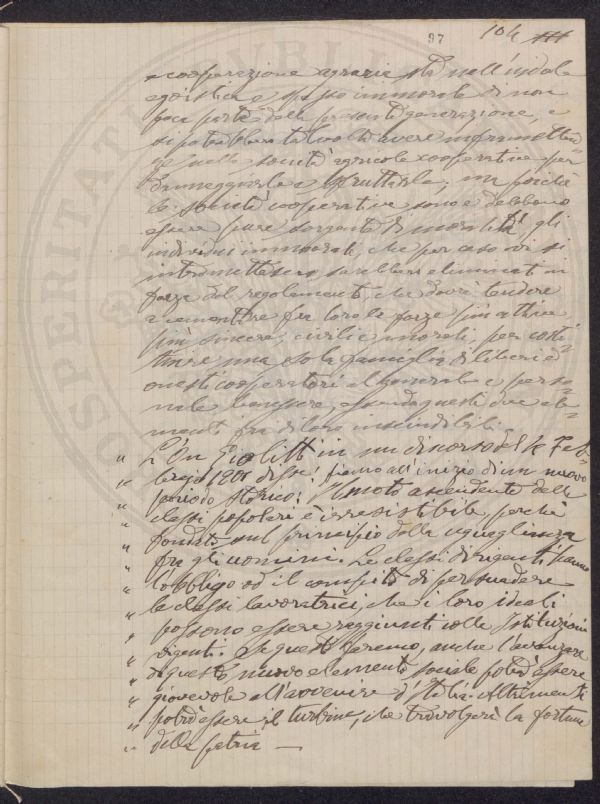 97 104
e cooperazione agraria sta nell'indole
egoistica e spesso immorale di non
poca parte della presente generazione, e
si potrebbero talvolta avere
nelle società agricole cooperative per
danneggiarle e sfruttarle; ma poiché
le società cooperative sono e debbono
essere pure sorgente di moralità, gli
individui immorali, che per caso vi si
intromettessero, sarebbero eliminati in
forza del regolamento, che dovrà tendere
a cementare fra loro le forze più attive
più sincere, civili e morali, per costi=
tuire una sola famiglia di liberi ed
onesti cooperatori al generale e perso=
nale benessere, essendo questi due ele=
menti fra di loro inscindibili.
" L'On Giolitti in un discorso del 4 Feb=
" braio 1901 disse: siamo all'inizio di un nuovo
" periodo storico: Il moto ascendente delle
" classi popolari è irresistibile perché
" fondato sul principio della uguaglianza
" fra gli uomini. Le classi dirigenti hanno
" l'obbligo ed il compito di persuadere
" le classi lavoratrici, che i loro ideali
" possono essere raggiunti colle Istituzioni
" vigenti. Se questo faremo, anche l'avanzare
" di questo nuovo elemento sociale potrà essere
" giovevole all'avvenire d'Italia. Altrimenti
" potrà essere il turbine, che travolgerà la fortuna
" della patria —